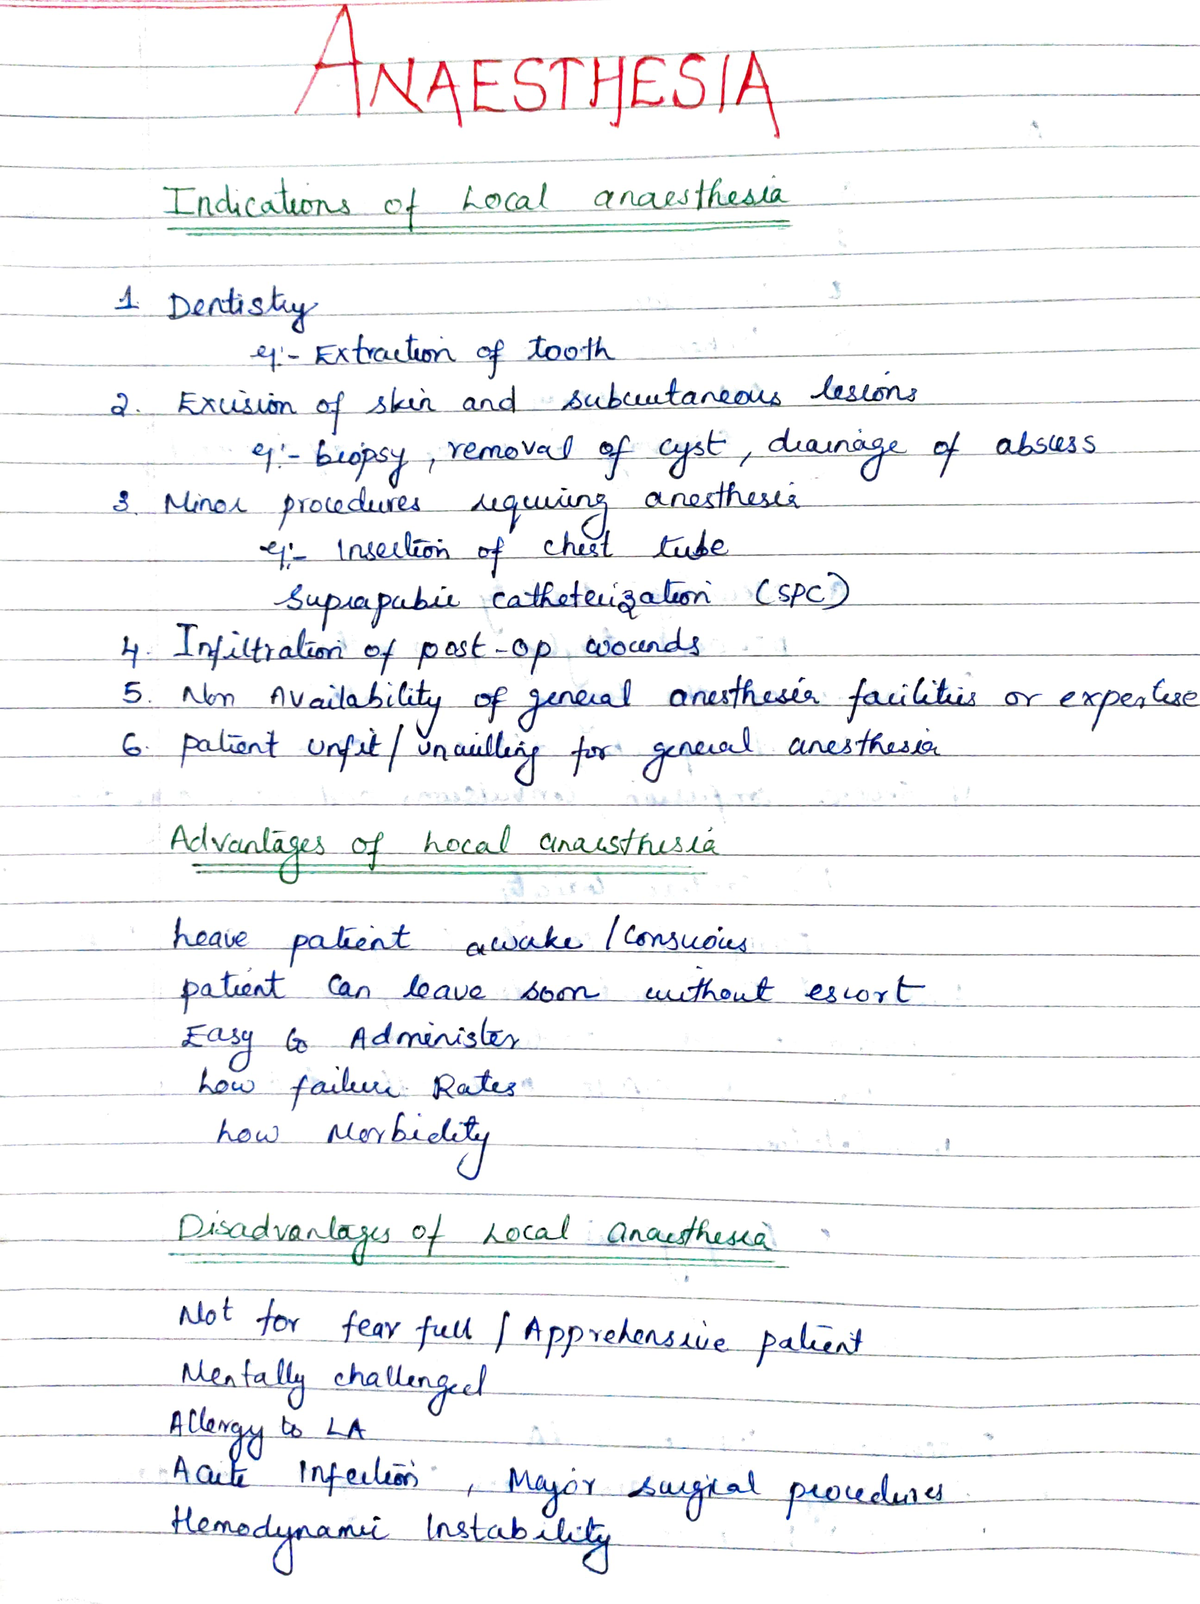 ANAESTHESIA
Indications of Local anaesthesia
1. Dentistry
eg:- Extraction of tooth
2. Excision of skin and subcutaneous lesions
eg:- biopsy, removal of cyst, drainage of abscess
3. Minor procedures requiring anesthesia
eg:- Insertion of chest tube
Suprapubic catheterization (SPC)
4. Infiltration of post-op wounds
5. Non Availability of general anesthesia facilities or expertise
6. patient unfit/unwilling for general anesthesia
Advantages of Local anaesthesia
Leave patient awake / Conscious
patient can leave soon without escort
Easy to Administer
Low failure Rates
Low Morbidity
Disadvantages of Local anaesthesia
Not for fear full / Apprehensive patient
Mentally challenged
Allergy to LA
Acute Infection, Major surgical procedures
Hemodynamic Instability